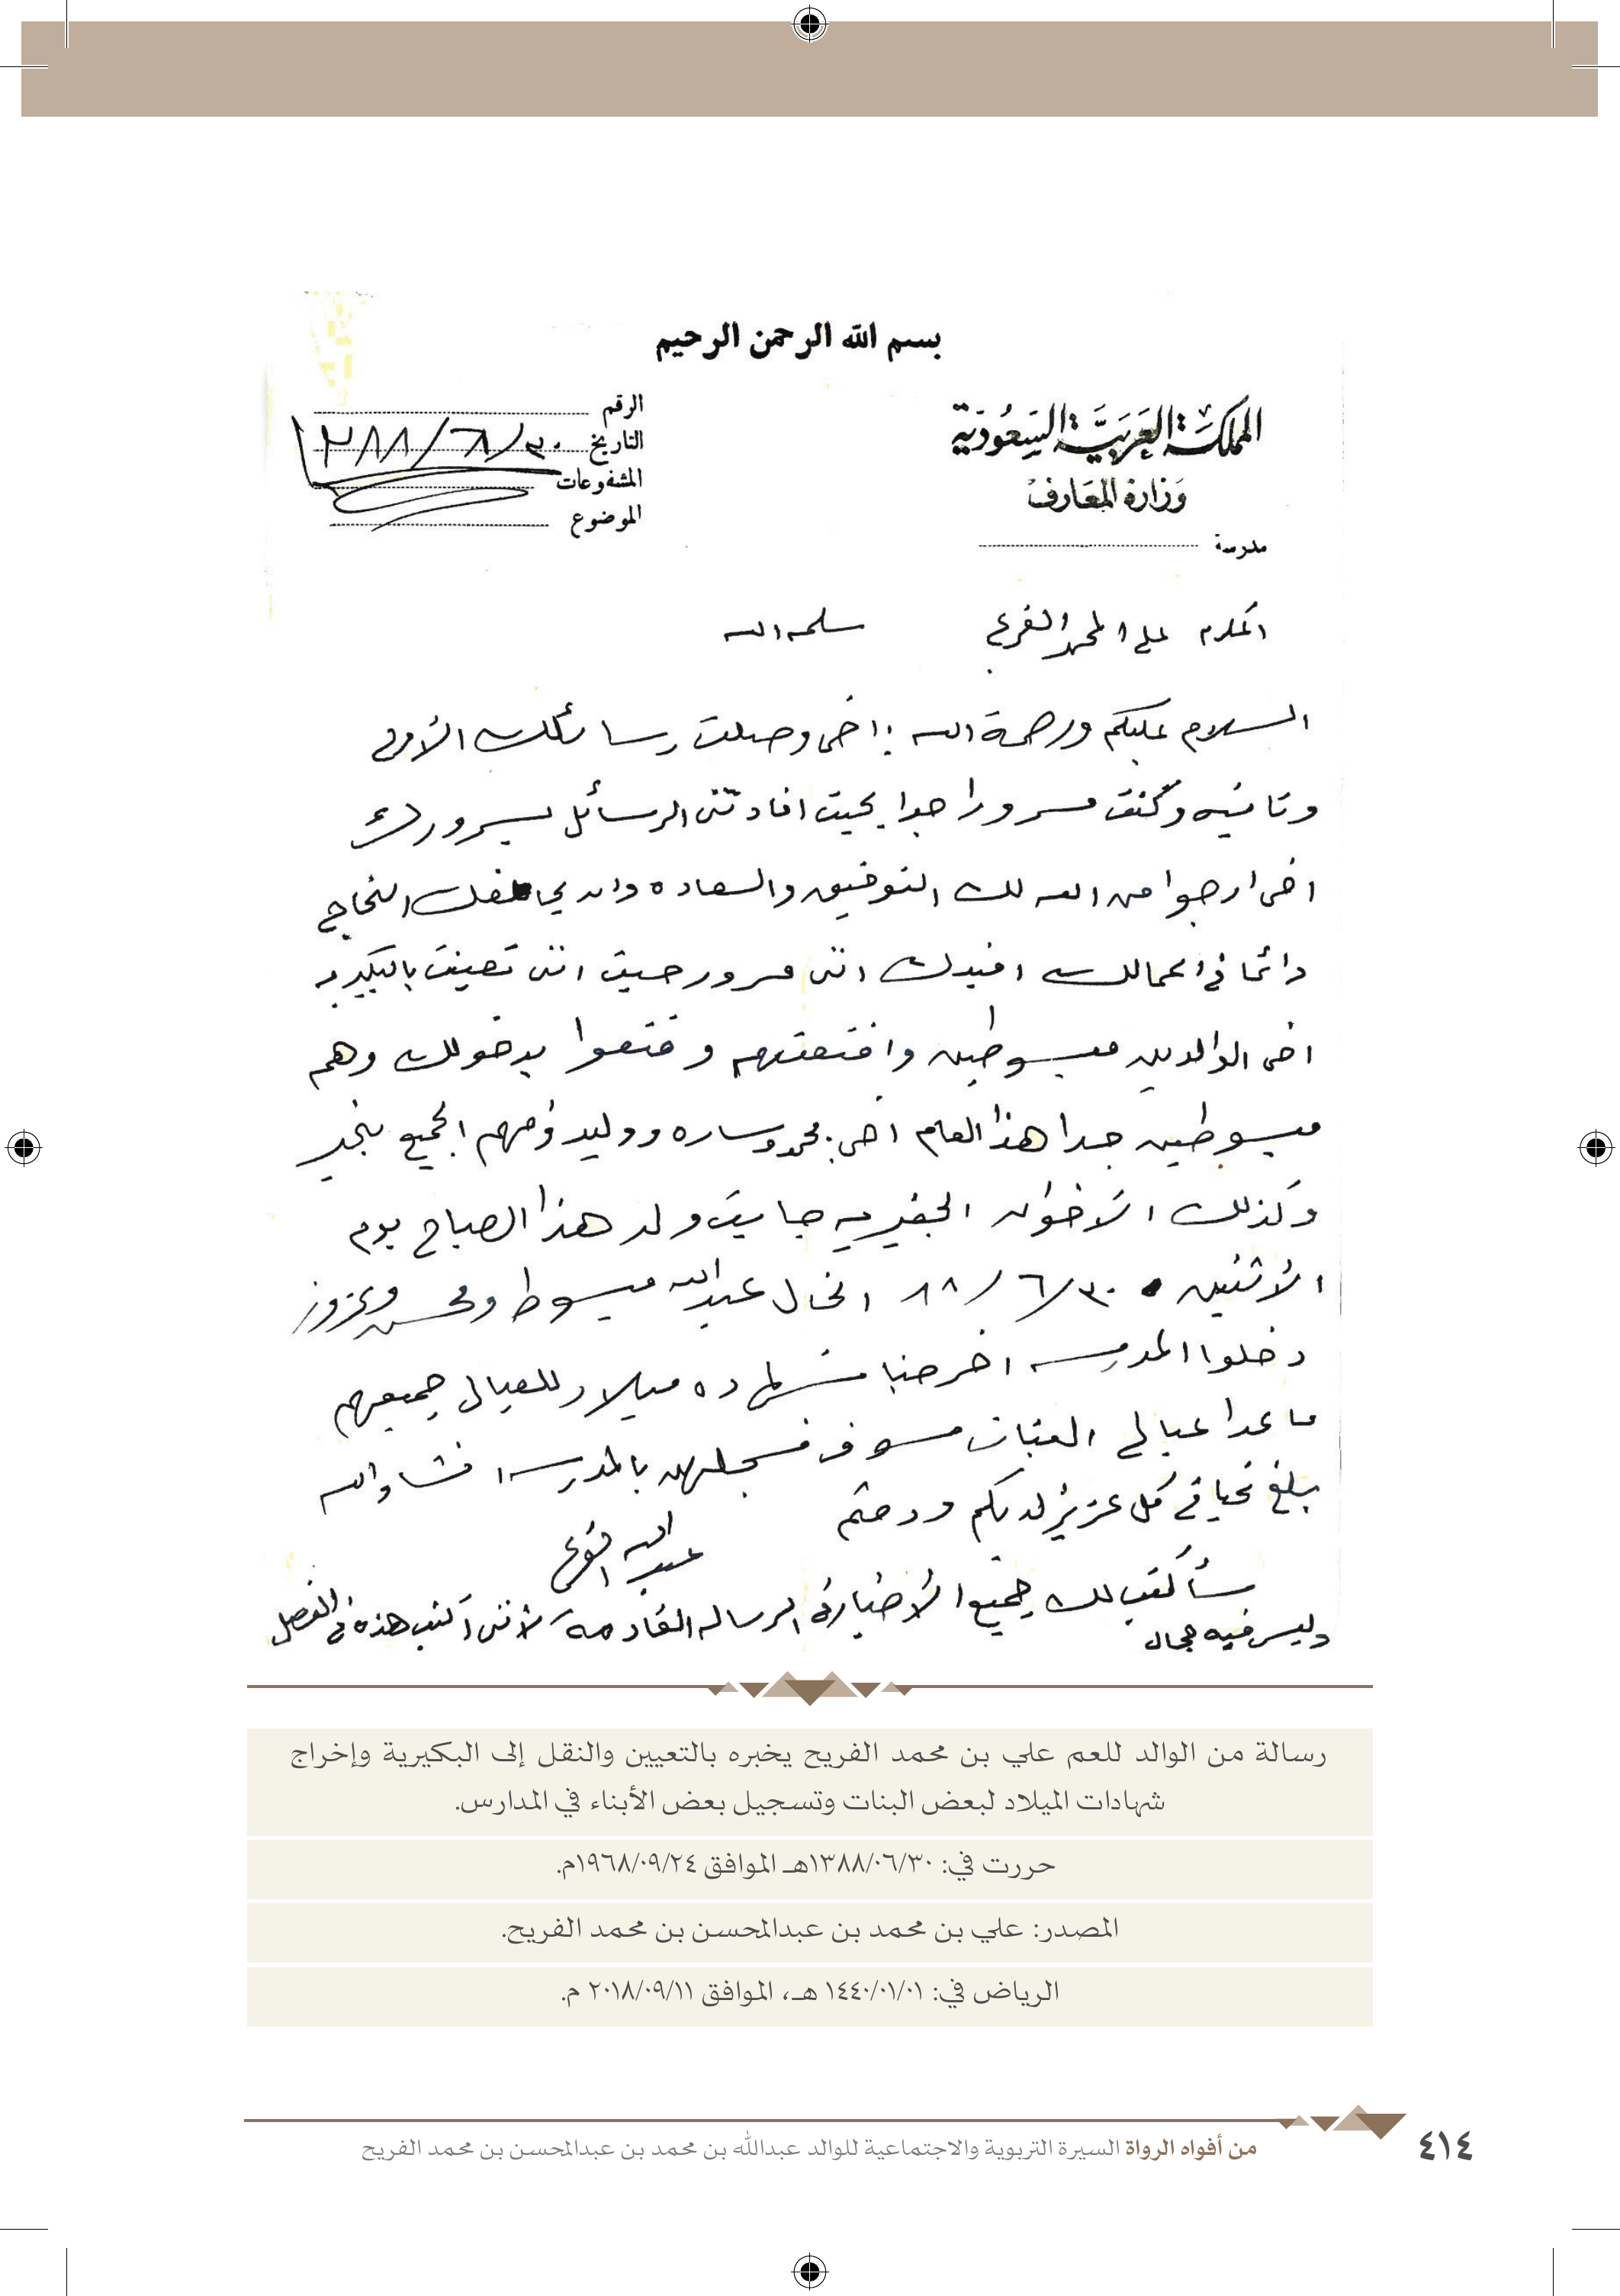 بسم الله الرحمن الرحيم
المملكة العربية السعودية
وزارة المعارف
مدرسة
الرقم
التاريخ ٣٠/٦/٣٨٨
المشفوعات
الموضوع
المكرم علي المحمد الفريح سلمه الله
السلام عليكم ورحمة الله: اخي وصلت رسائلك الأولى
وثانيه وكنت مسرورا جدا بحيث افادتني الرسائل بسرورك
اخي ارجوا من الله لك التوفيق والسعاده وان يحالفك النجاح
دائما في اعمالك افيدك انني مسرور حيث انني تعينت بالبكيريه
اخي الوالدين مبسوطين واقنعتهم وقنعوا بدخولك وهم
مبسوطين جدا هذا العام اخي: محمد وساره ووليد وامهم الجميع بخير
وكذلك الأخوان الجفير جايت ولد هذا الصباح يوم
الأثنين ٣٠/٦/٨٨ الخال عبدالله مبسوط ومحسن وعزوز
دخلوا المدرسه اخرجنا شهاده ميلاد للعيال جميعهم
ماعدا عيالي البنات سوف نسجلهن بالمدرسه انشاء الله
بلغ تحياتي كل عزيز لديكم ودمتم
عبدالله الفريح
سأكتب لك جميع الأخبار في الرساله القادمة لأنني أكتب هذه في الفصل
وليس فيه مجال
رسالة من الوالد للعم علي بن محمد الفريح يخبره بالتعيين والنقل إلى البكيرية وإخراج
شهادات الميلاد لبعض البنات وتسجيل بعض الأبناء في المدارس.
حررت في: ١٣٨٨/٠٦/٣٠هـ الموافق ١٩٦٨/٠٩/٢٤م.
المصدر: علي بن محمد بن عبدالمحسن بن محمد الفريح.
الرياض في: ١٤٤٠/٠١/٠١ هـ، الموافق ٢٠١٨/٠٩/١١ م.
٤١٤ من أفواه الرواة السيرة التربوية والاجتماعية للوالد عبدالله بن محمد بن عبدالمحسن بن محمد الفريح